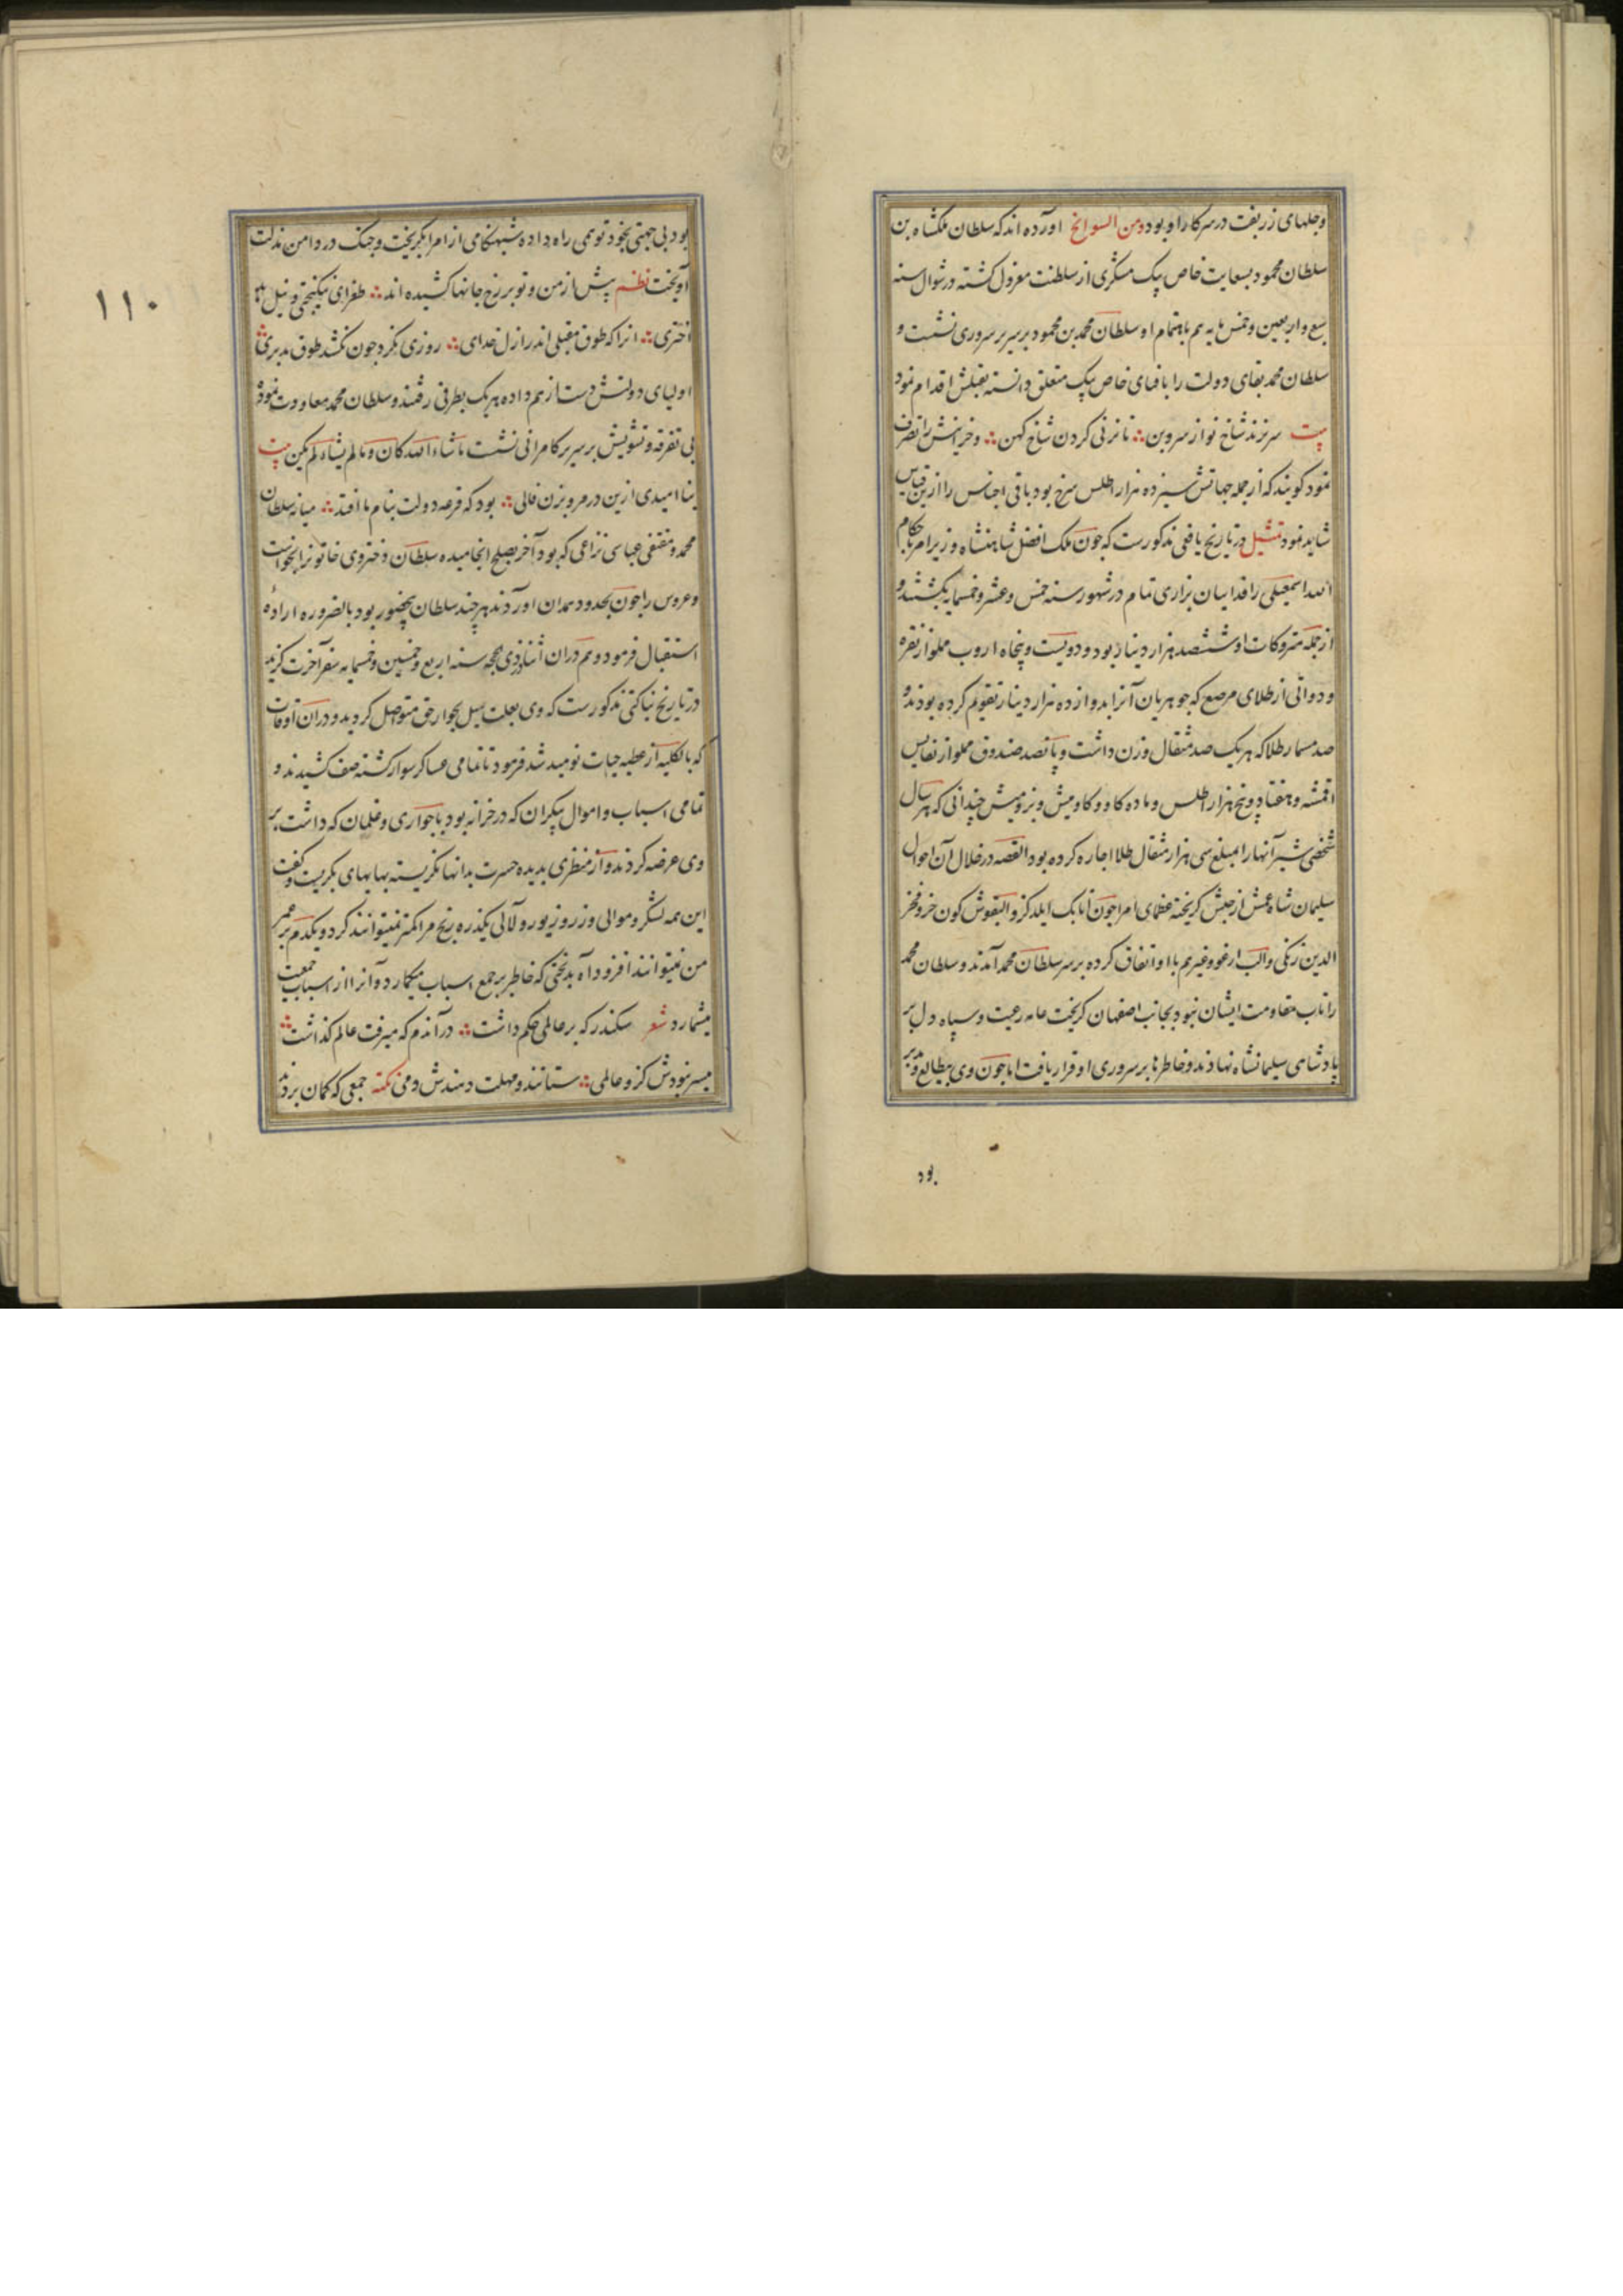 وجلهای زربفت در سرکار او بود ومن السوانح آورده اند که سلطان ملکشاه بن
سلطان محمود بسعایت خاص بیک مشکری از سلطنت معزول کشته در شوال سنه
سبع واربعین وخمس مایه هم باهتمام او سلطان محمد بن محمود بر سریر سروری نشست و
سلطان محمد بقای دولت را بافنای خاص بیک متعلق دانسته بقتلش اقدام نمود
بیت سر نزند شاخ نو از سرو بن تا نزنی کردن شاخ کهن وخزاینش را تصرف
نمود کویند که از جمله جهاتش سیزده هزار اطلس سرخ بود باقی اجناس را ازین قیاس
شاید نمود تمثیل در تاریخ یافعی مذکورست که چون ملک افضل شاهنشاه وزیر امر باحکام
الله اسمعیلی را فداییان نزاری تمام در شهور سنه خمس وعشر وخمسمایه بکشتند و
از جمله متروکات او ششصد هزار دینار بود و دویست و پنجاه اروب مملو از نقره
و دواتی از طلای مرصع که جوهریان آنرا بدوازده هزار دینار تقویم کرده بودند و
صد مسمار طلا که هریک صد مثقال وزن داشت و پانصد صندوق مملو از نفایس
اقمشه و هفتاد و پنج هزار اطلس و ماده کاو و کاومیش و بز و میش چندانی که هر سال
شخصی شیر آنها را بمبلغ سی هزار مثقال طلا اجاره کرده بود القصه در خلال آن احوال
سلیمان شاه عمش از حبش کریخته عظمای امرا چون اتابک ایلدکز و البقوش کون خر و فخر
الدین زنکی و الب ارغو وغیرهم با او اتفاق کرده بر سر سلطان محمد آمدند و سلطان محمد
را تاب مقاومت ایشان نبود بجانب اصفهان کریخت عامه رعیت و سپاه دل بر
پادشاهی سلیمانشاه نهادند و خاطرها بر سروری او قرار یافت اما چون وی بیطالع ومدبر
بود
۱۱۰
بود بی جهتی بخود توهمی راه داده شبهنکامی از امرا بکریخت و چنک در دامن مذلت
آویخت نظم پیش از من و تو بر رخ جانها کشیده اند طغرای نیکبختی و نیل بد
اختری انرا که طوق مقبلی اندر ازل خدای روزی نکرد چون نکشد طوق مدبری
اولیای دولتش دست از هم داده هریک بطرفی رفتند و سلطان محمد معاودت نموده
بی تفرقه و تشویش بر سریر کامرانی نشست ماشاء الله کان و مالم یشاء لم یکن بیت
بنا امیدی ازین در مرو بزن فالی بود که قرعه دولت بنام ما افتد میانه سلطان
محمد و مقتفی عباسی نزاعی که بود آخر بصلح انجامیده سلطان دختر وی خاتونرا بخواست
و عروس را چون بحدود همدان اوردند هر چند سلطان رنجور بود بالضروره اراده
استقبال فرمود و هم دران اثنا در ذی حجه سنه اربع وخمسین وخمسمایه سفر آخرت کزید
در تاریخ بناکتی مذکورست که وی بعلت سل بجوار حق متواصل کردید و دران اوقات
که بالکلیه از عطیه حیات نومید شد فرمود تا تمامی عساکر سوار کشته صف کشیدند و
تمامی اسباب و اموال بیکران که در خزانه بود با جواری و غلمان که داشت بر
وی عرضه کردند و از منظری بدیده حسرت بدانها نکریسته بهایهای بکریست و کفت
این همه لشکر و موالی و زر و زیور و لآلی یکذره رنج مرا کمتر نمیتوانند کرد و یکدم بر عمر
من نمیتوانند افزود آه بدبختی که خاطر بر جمع اسباب میکمارد و آنرا از اسباب جمعیت
میشمارد شعر سکندر که بر عالمی حکم داشت درآندم که میرفت عالم کذاشت
میسر نبودش کزو عالمی ستانند و مهلت دهندش دمی نکته جمعی که کمان بردند